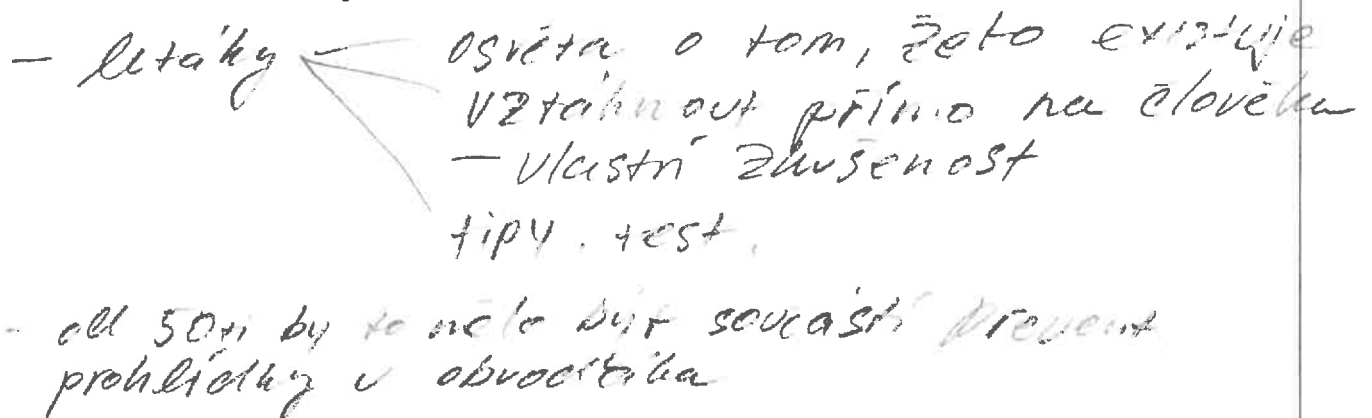 - letáky - osvěta o tom, že to existuje
vztáhnout přímo na člověka
- vlastní zkušenost
tipy. test.
- od 50ti by to mělo být součástí prevent
prohlídky u obvoďáka